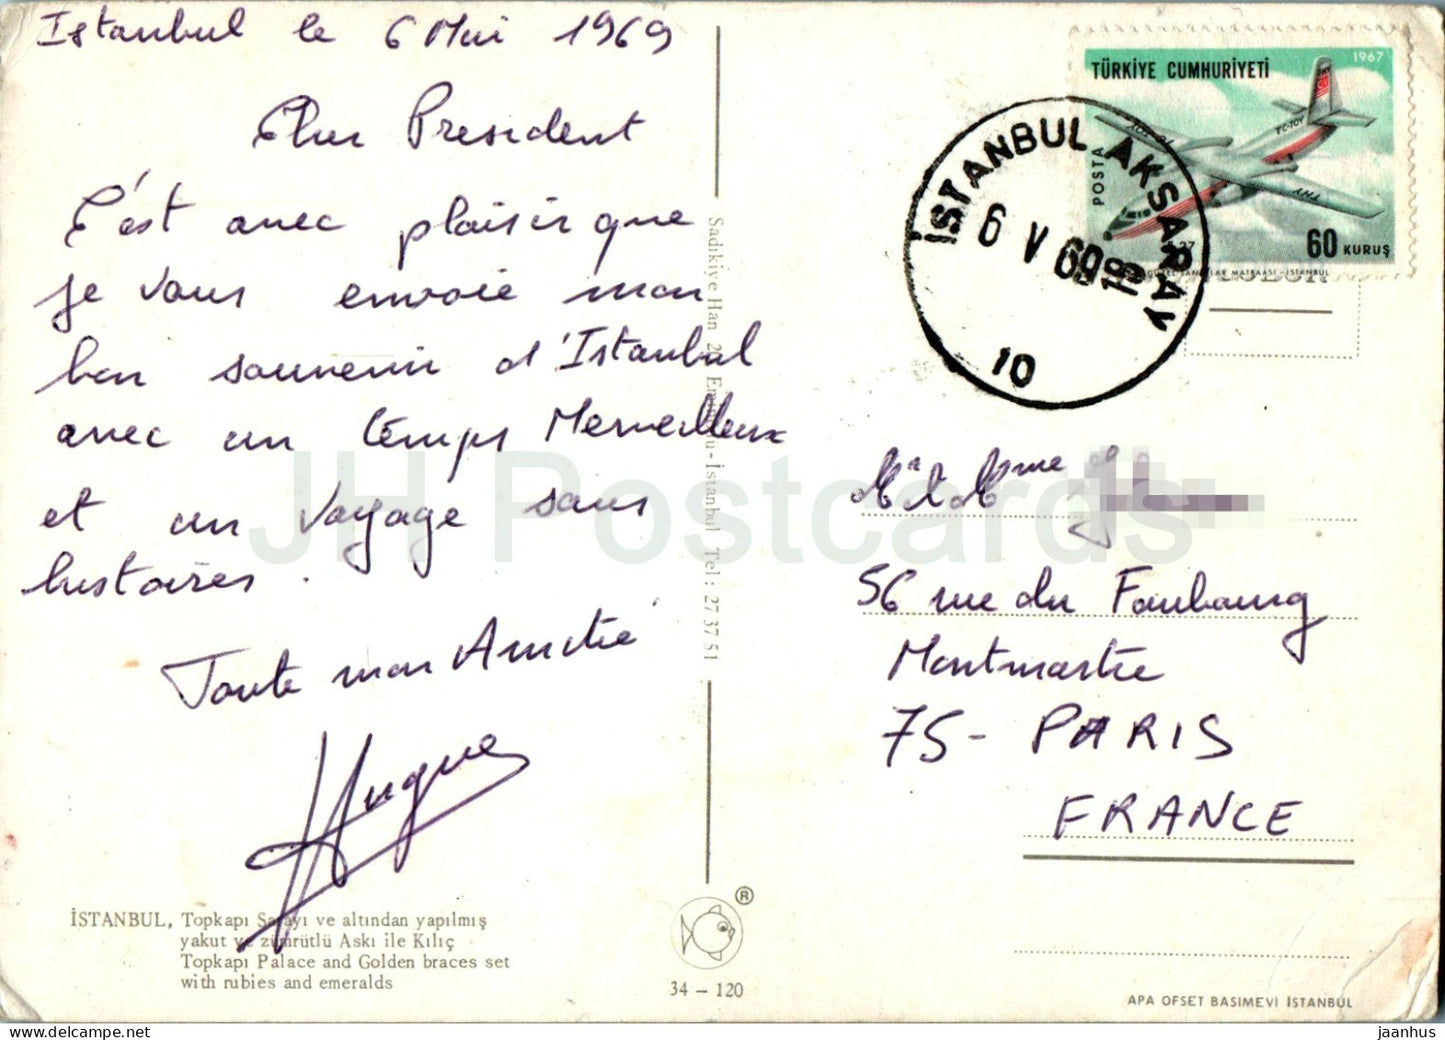 Istanbul le 6 Mai 1969
Cher President
C'est avec plaisir que
je vous envoie mon
bon souvenir d'Istanbul
avec un temps Merveilleux
et un voyage sans
histoires.
Toute mon Amitié
Hugues
İSTANBUL, Topkapı Sarayı ve altından yapılmış
yakut ve zümrütlü Askı ile Kılıç
Topkapı Palace and Golden braces set
with rubies and emeralds
Sadıkiye Han 2 -İstanbul Tel: 27 37 51
®
34 - 120
TÜRKİYE CUMHURİYETİ
1967
POSTA
TC-TOY
THY
F.27
60 KURUŞ
GÜZEL SANATLAR MATBAASI - İSTANBUL
İSTANBUL AKSARAY
6 V 69
10
Mr & Mme
56 rue du Faubourg
Montmartre
75 - PARIS
FRANCE
APA OFSET BASIMEVİ İSTANBUL
JH Postcards
jaanhus delcampe.net